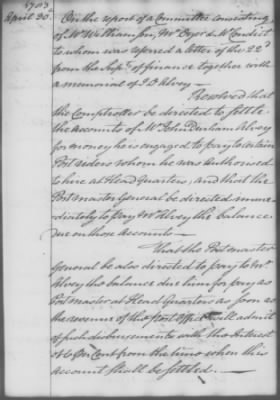 1783
April 30.
On the report of a Committee consisting
of Mr Williamson, Mr Dyer & Mr Condict
to whom was referred a letter of the 22d
from the Supt. of finance together with
a memorial of J D Alvey —
Resolved that
the Comptroller be directed to settle
the Accounts of Mr John Denham Alvey
for money he is engaged to pay to certain
Post riders whom he was Authorised
to hire at Head Quarters, and that the
Post master General be directed imme-
diately to pay Mr Alvey the balance
due on those Accounts —
That the Post master
General be also directed to pay to Mr
Alvey the balance due him for pay as
Postmaster at Head Quarters as soon as
the revenue of the post Office will admit
of such disbursements with the Interest
of 6 Per Cent from the time when this
account shall be settled. —